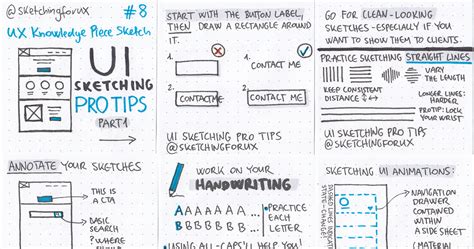 @sketchingforux
#8
UX Knowledge Piece Sketch
UI
SKETCHING
PRO TIPS
PART 1
START WITH THE BUTTON LABEL,
THEN DRAW A RECTANGLE AROUND
IT.
1.
CONTACT ME
2.
CONTACT ME
CONTACT ME
UI SKETCHING PRO TIPS
@SKETCHINGFORUX
GO FOR CLEAN-LOOKING
SKETCHES - ESPECIALLY IF YOU
WANT TO SHOW THEM TO CLIENTS.
PRACTICE SKETCHING STRAIGHT LINES
VARY
THE LENGTH
KEEP CONSISTENT
DISTANCE
LONGER LINES:
HARDER
PROTIP: LOCK
YOUR WRIST
UI SKETCHING PRO TIPS
@SKETCHINGFORUX
ANNOTATE YOUR SKETCHES
THIS IS
A CTA
BASIC
SEARCH
WORK ON YOUR
HANDWRITING
PRACTICE
EACH
LETTER
USING ALL-CAPS'LL HELP YOU!
SKETCHING UI ANIMATIONS:
NAVIGATION
DRAWER
CONTAINED
WITHIN
A SIDE-SHEET